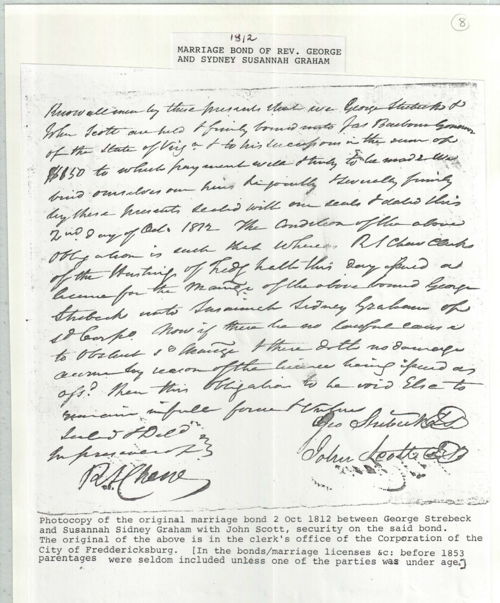 8
1812
MARRIAGE BOND OF REV. GEORGE
AND SYDNEY SUSANNAH GRAHAM
Know all men by these presents that we George Strebeck &
John Scott are held & firmly bound unto Jas Barbour Governor
of the State of Virga & to his successors in the sum of
$150 to which payment well & truly to be made we
bind ourselves our heirs &c jointly & severally firmly
by these presents sealed with our seals & dated this
2nd day of Oct. 1812 The Condition of the above
Obligation is such that Whereas R S Chew Clerk
of the Hustings of Fredg hath this day issued a
license for the Marrge of the above bound George
Strebeck unto Susannah Sidney Graham of
sd Corpo. Now if there be no lawful cause
to Obstruct sd Marrge & there doth no damage
accrue by reason of the licence being issued as
afsd. Then this Obligation to be void Else to
remain in full force & Virtue
Seald & Deld
In presence of
Geo Strebeck LS
John Scott LS
R S Chew
Photocopy of the original marriage bond 2 Oct 1812 between George Strebeck
and Susannah Sidney Graham with John Scott, security on the said bond.
The original of the above is in the clerk's office of the Corporation of the
City of Freddericksburg. [In the bonds/marriage licenses &c: before 1853
parentages were seldom included unless one of the parties was under age]